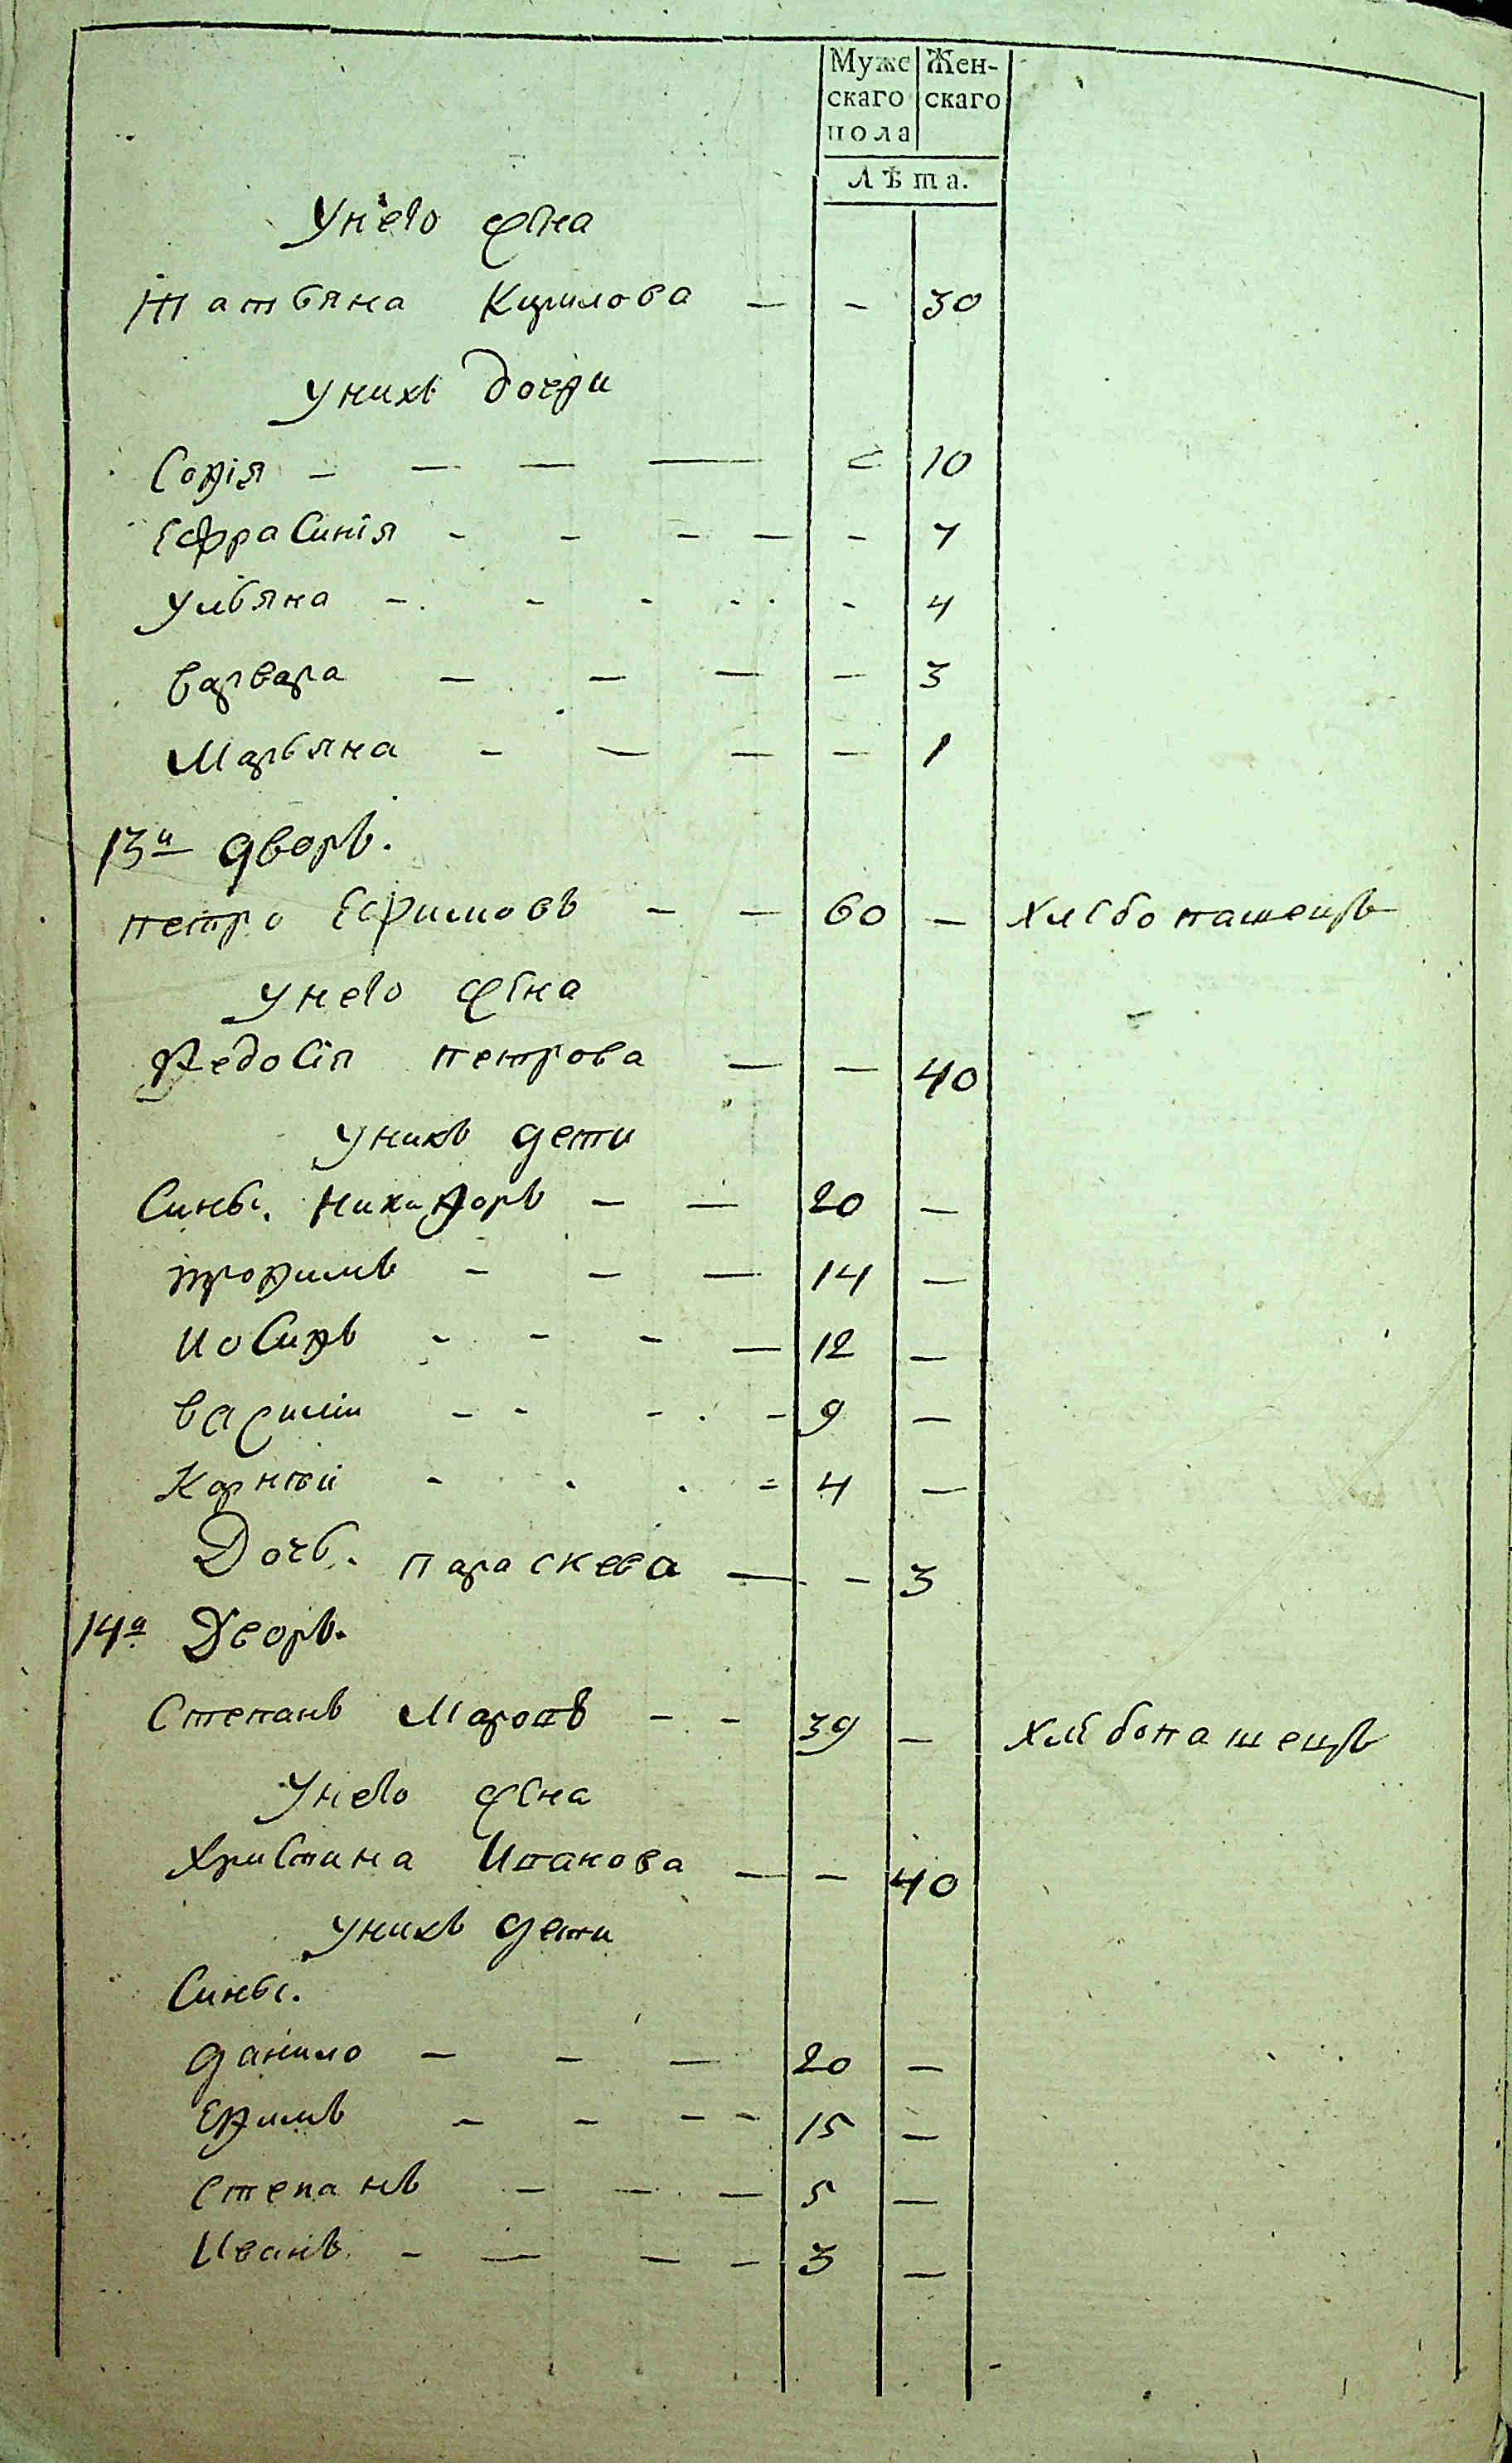 Муже Жен-
скаго скаго
пола
Лѣта.
У него жена
Татьяна Кирилова — — 30
У нихъ дочери
Софія — — — — — 10
Ефрасинія - - - — - 7
Ульяна - - - - - 4
Варвара — — — — 3
Марьяна - — — — 1
13й дворъ.
Петро Ефимовъ — — 60 — Хлебопашецъ
У него жена
Федосія Петрова — — 40
У нихъ дети
Сины. Никифоръ — — 20 —
Трофимъ - — — 14 —
Иосифъ - - - — 12 —
Василии - - - - - 9 —
Корнѣй - - - = 4 —
Дочь. Параскева — - 3
14й Дворъ.
Степанъ — - 39 — Хлебопашецъ
У него жена
Христина — - 40
У нихъ дети
Сины.
Данило — - — 20 —
Ефимъ - - - - 15 —
Степанъ — — — 5 —
Иванъ - — - - 3 —